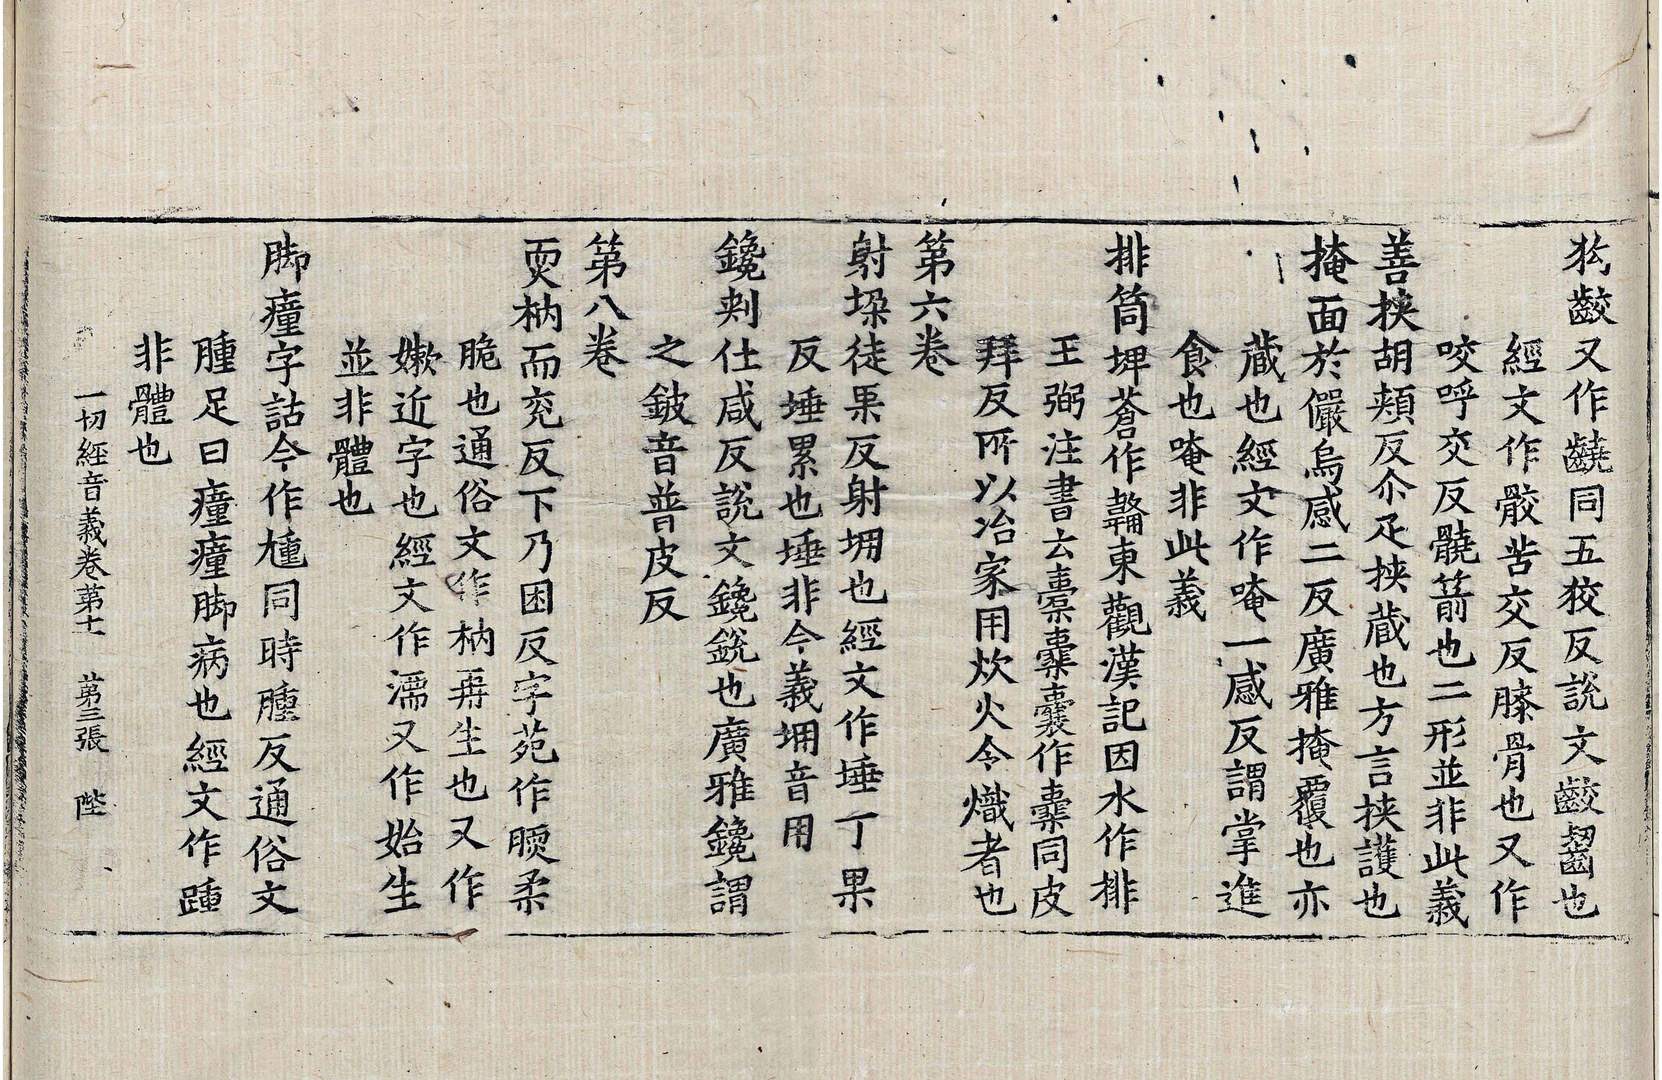 狋齩又作齩同五狡反說文齩齧也
經文作骹苦交反膝骨也又作
咬呼交反髐箭也二形並非此義
善挾胡頰反尒疋挾蔵也方言挾護也
掩面於儼烏感二反廣雅掩覆也亦
蔵也經文作唵一感反謂掌進
食也唵非此義
排筒埤蒼作韛東觀漢記因水作排
王弼注書云橐橐囊作橐同皮
拜反所以冶家用炊火令熾者也
第六卷
射垜徒果反射堋也經文作埵丁果
反埵累也埵非今義堋音用
鑱刾仕咸反說文鑱銳也廣雅鑱謂
之鈹音普皮反
第八卷
耎枘而兖反下乃困反字苑作腝柔
脆也通俗文作枘再生也又作
嫩近字也經文作濡又作始生
並非體也
脚瘇字詁今作尰同時腫反通俗文
腫足曰瘇瘇脚病也經文作踵
非體也
一切經音義卷第十一 第三張 陛